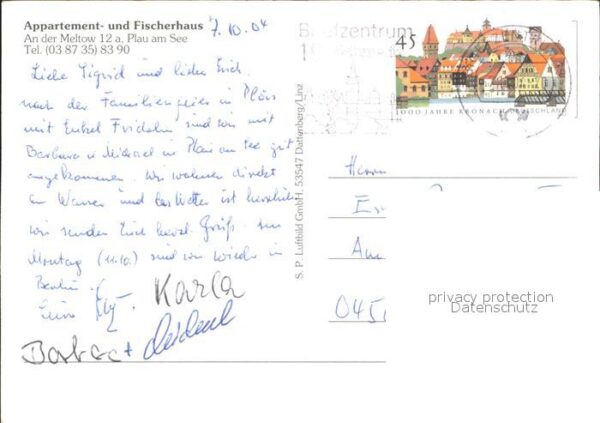 Appartement- und Fischerhaus
An der Meltow 12 a, Plau am See
Tel. (03 87 35) 83 90
7.10.04
Liebe Sigrid und lieber Erich,
nach der Familienfeier in
mit Enkel Fridolin sind wir mit
Barbara u Michael in Plau am See gut
angekommen. Wir wohnen direkt
am Wasser und das Wetter ist herrlich
wir senden Euch herzl. Grüße. Am
Montag (11.10.) sind wir wieder in
Berlin.
Karla
Barbara + Michael
S. P. Luftbild GmbH, 53547 Dattenberg/Linz
Briefzentrum
45
1000 JAHRE KRONACH DEUTSCHLAND
Herrn
E
Am
045
privacy protection
Datenschutz